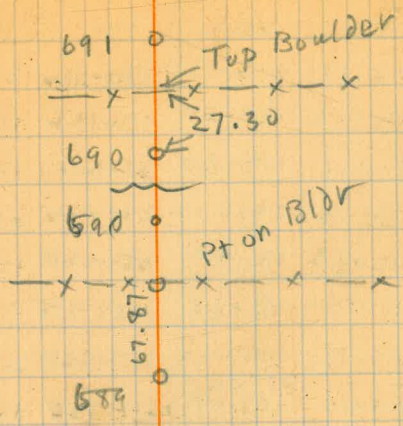 691
Top Boulder
27.30
690
690
Pt on Bldr
67.87
689